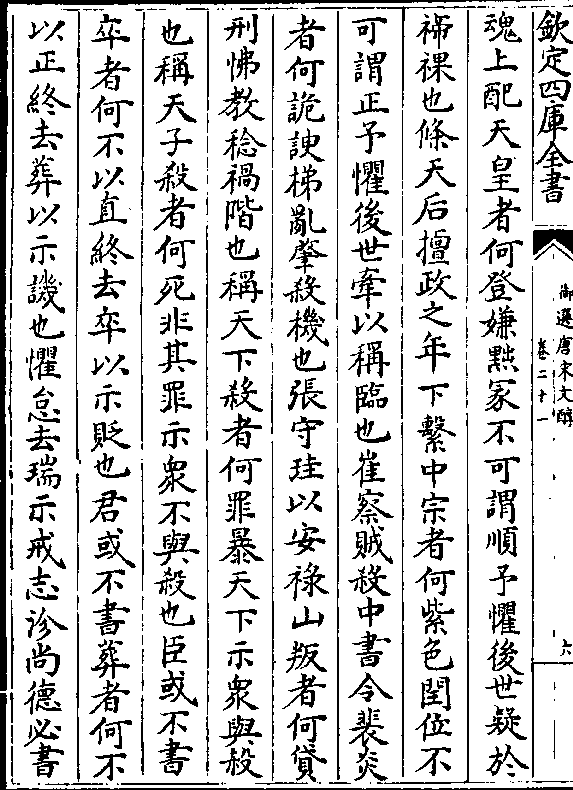 欽定四庫全書
御選唐宋文醇
卷二十一
六
魂上配天皇者何登嫌黜冢不可謂順予懼後世疑於
禘祼也條天后擅政之年下繫中宗者何紫色閏位不
可謂正予懼後世牽以稱臨也崔察賊殺中書令裴炎
者何詭諛梯亂肇殺機也張守珪以安祿山叛者何貸
刑怫教稔禍階也稱天下殺者何罪暴天下示衆與殺
也稱天子殺者何死非其罪示衆不與殺也臣或不書
卒者何不以直終去卒以示貶也君或不書葬者何不
以正終去葬以示譏也懼怠去瑞示戒志沴尚德必書